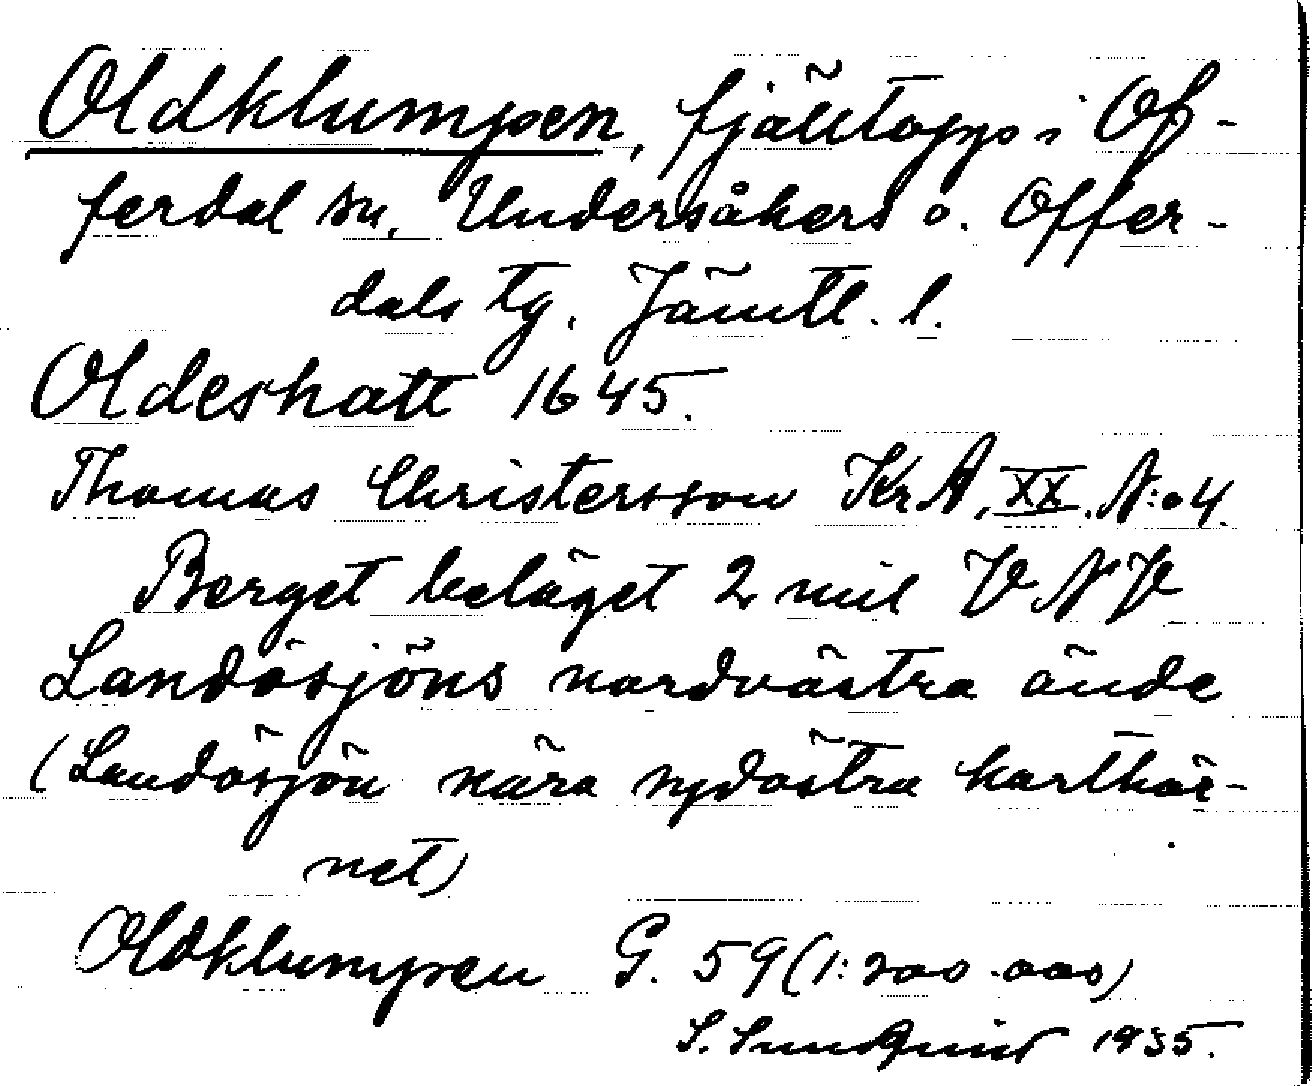 Oldklumpen, fjälltopp i Of-
ferdal sn, Undersåkers o. Offer-
dals tg. Jämtl. l.
Oldeshatt 1645.
Thomas Christersson KrA, XX. N:o 4.
Berget beläget 2 mil V NV
Landösjöns nordvästra ände
(Landösjön nära sydöstra karthör-
net)
Oldklumpen G. 59 (1:200.000)
S. Sundquist 1935.